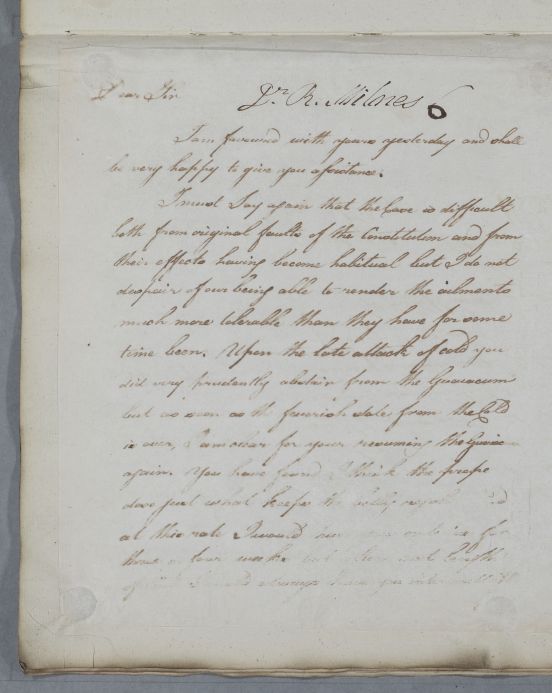 Dear Sir
Dr. R. Milnes 6
I am favoured with yours yesterday and shall
be very happy to give you assistance.
I must Say again that the Case is difficult
both from original faults of the Constitution and from
their effects having become habitual but I do not
despair of our being able to render the ailments
much more tolerable than they have for some
time been. Upon the late attack of cold you
did very prudently abstain from the Guaiacum
but as soon as the feverish state from the Cold
is over, I am clear for your resuming the Guaiac
again. You have found I think the proper
dose just what keeps the belly
at this rate I would have
three or four weeks but after that length
of I would always have you